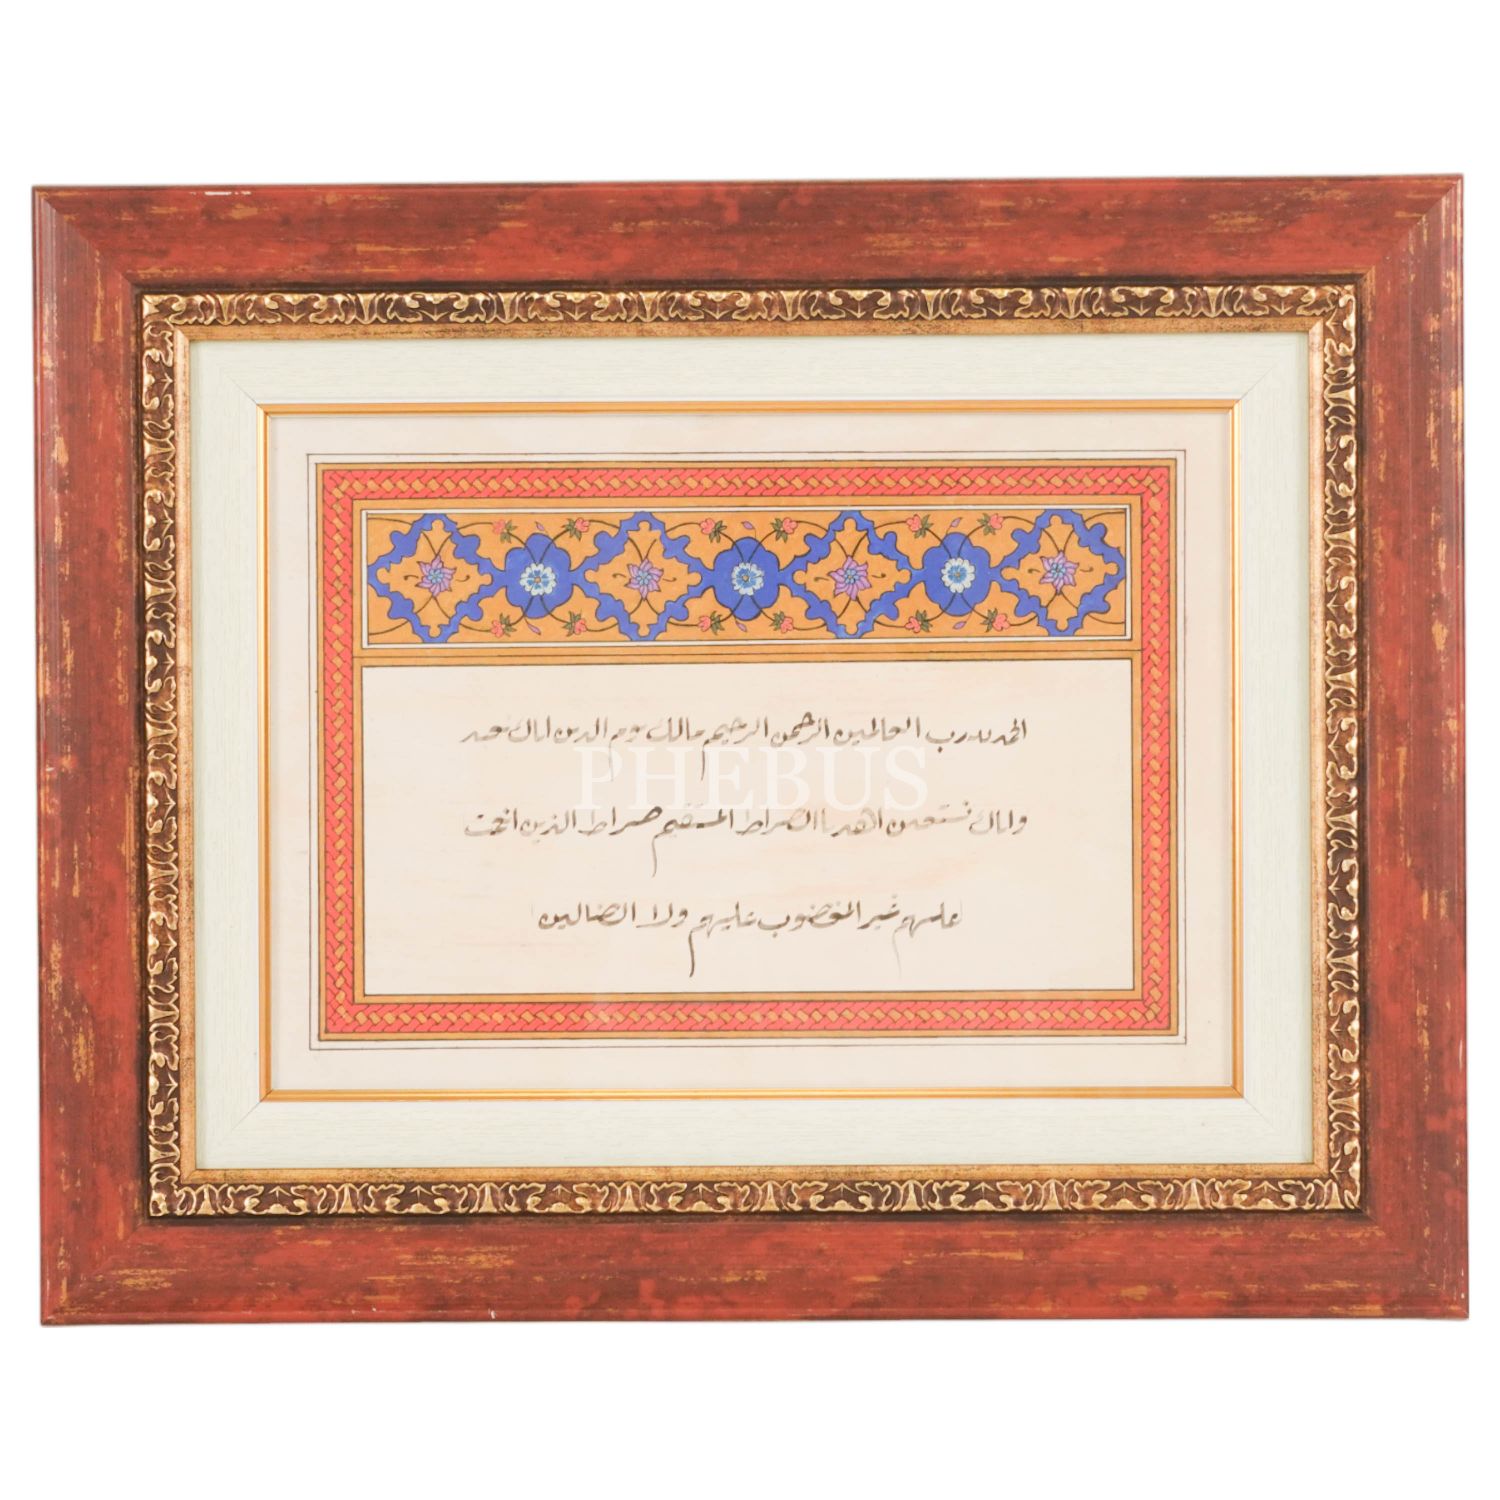 الحمد لله رب العالمين الرحمن الرحيم مالك يوم الدين اياك نعبد
PHEBUS
واياك نستعين اهدنا الصراط المستقيم صراط الذين انعمت
عليهم غير المغضوب عليهم ولا الضالين